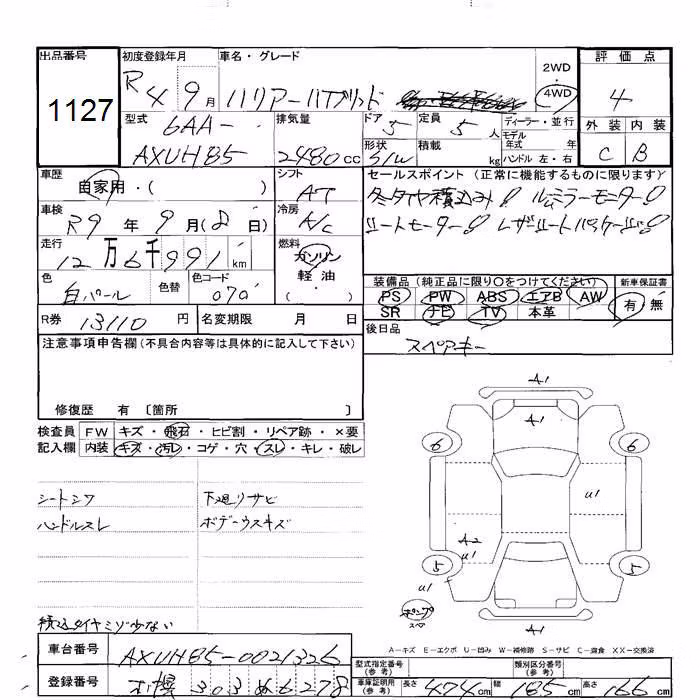 出品番号
1127
初度登録年月
R4 9月
車名・グレード
ハリアー ハイブリッド
2WD
4WD
評価点
4
外装 内装
C B
型式
6AA-
AXUH85
排気量
2480cc
ドア 5
形状 S/W
定員 5人
積載 kg
ディーラー・並行
モデル年式 年式
ハンドル 左・右
車歴
自家用・( )
シフト
AT
セールスポイント(正常に機能するものに限ります)
冬タイヤ積込み! ルームミラーモニター!
シートヒーター! レザーシートパッケージ!
車検
R9年 9月(8日)
冷房
A/C
走行
12万6千991km
燃料
ガソリン
軽油
・( )
色
白パール
色替
色コード
070
装備品(純正品に限り〇をつけてください)
PS PW ABS エアB AW
SR ナビ TV 本革
新車保証書
有 無
R券 13110円
名変期限 月 日
後日品
スペアキー
注意事項申告欄(不具合内容等は具体的に記入して下さい)
修復歴 有〔箇所 〕
検査員記入欄
FW キズ・飛石・ヒビ割・リペア跡・×要
内装 キズ・汚レ・コゲ・穴・スレ・キレ・破レ
シートシワ 下廻りサビ
ハンドルスレ ボデーウスキズ
積込タイヤミゾ少ない
A1
A1
6 6
U1
A2
U1
5 5
U1
ポンプ
スペ
A1
A-キズ E-エクボ U-凹み W-補修跡 S-サビ C-腐食 XX-交換済
車台番号 AXUH85-0021326
登録番号 札幌 303 め 6278
型式指定番号(参考)
類別区分番号(参考)
車庫証明用(参考) 長さ 474cm 幅 185cm 高さ 166cm